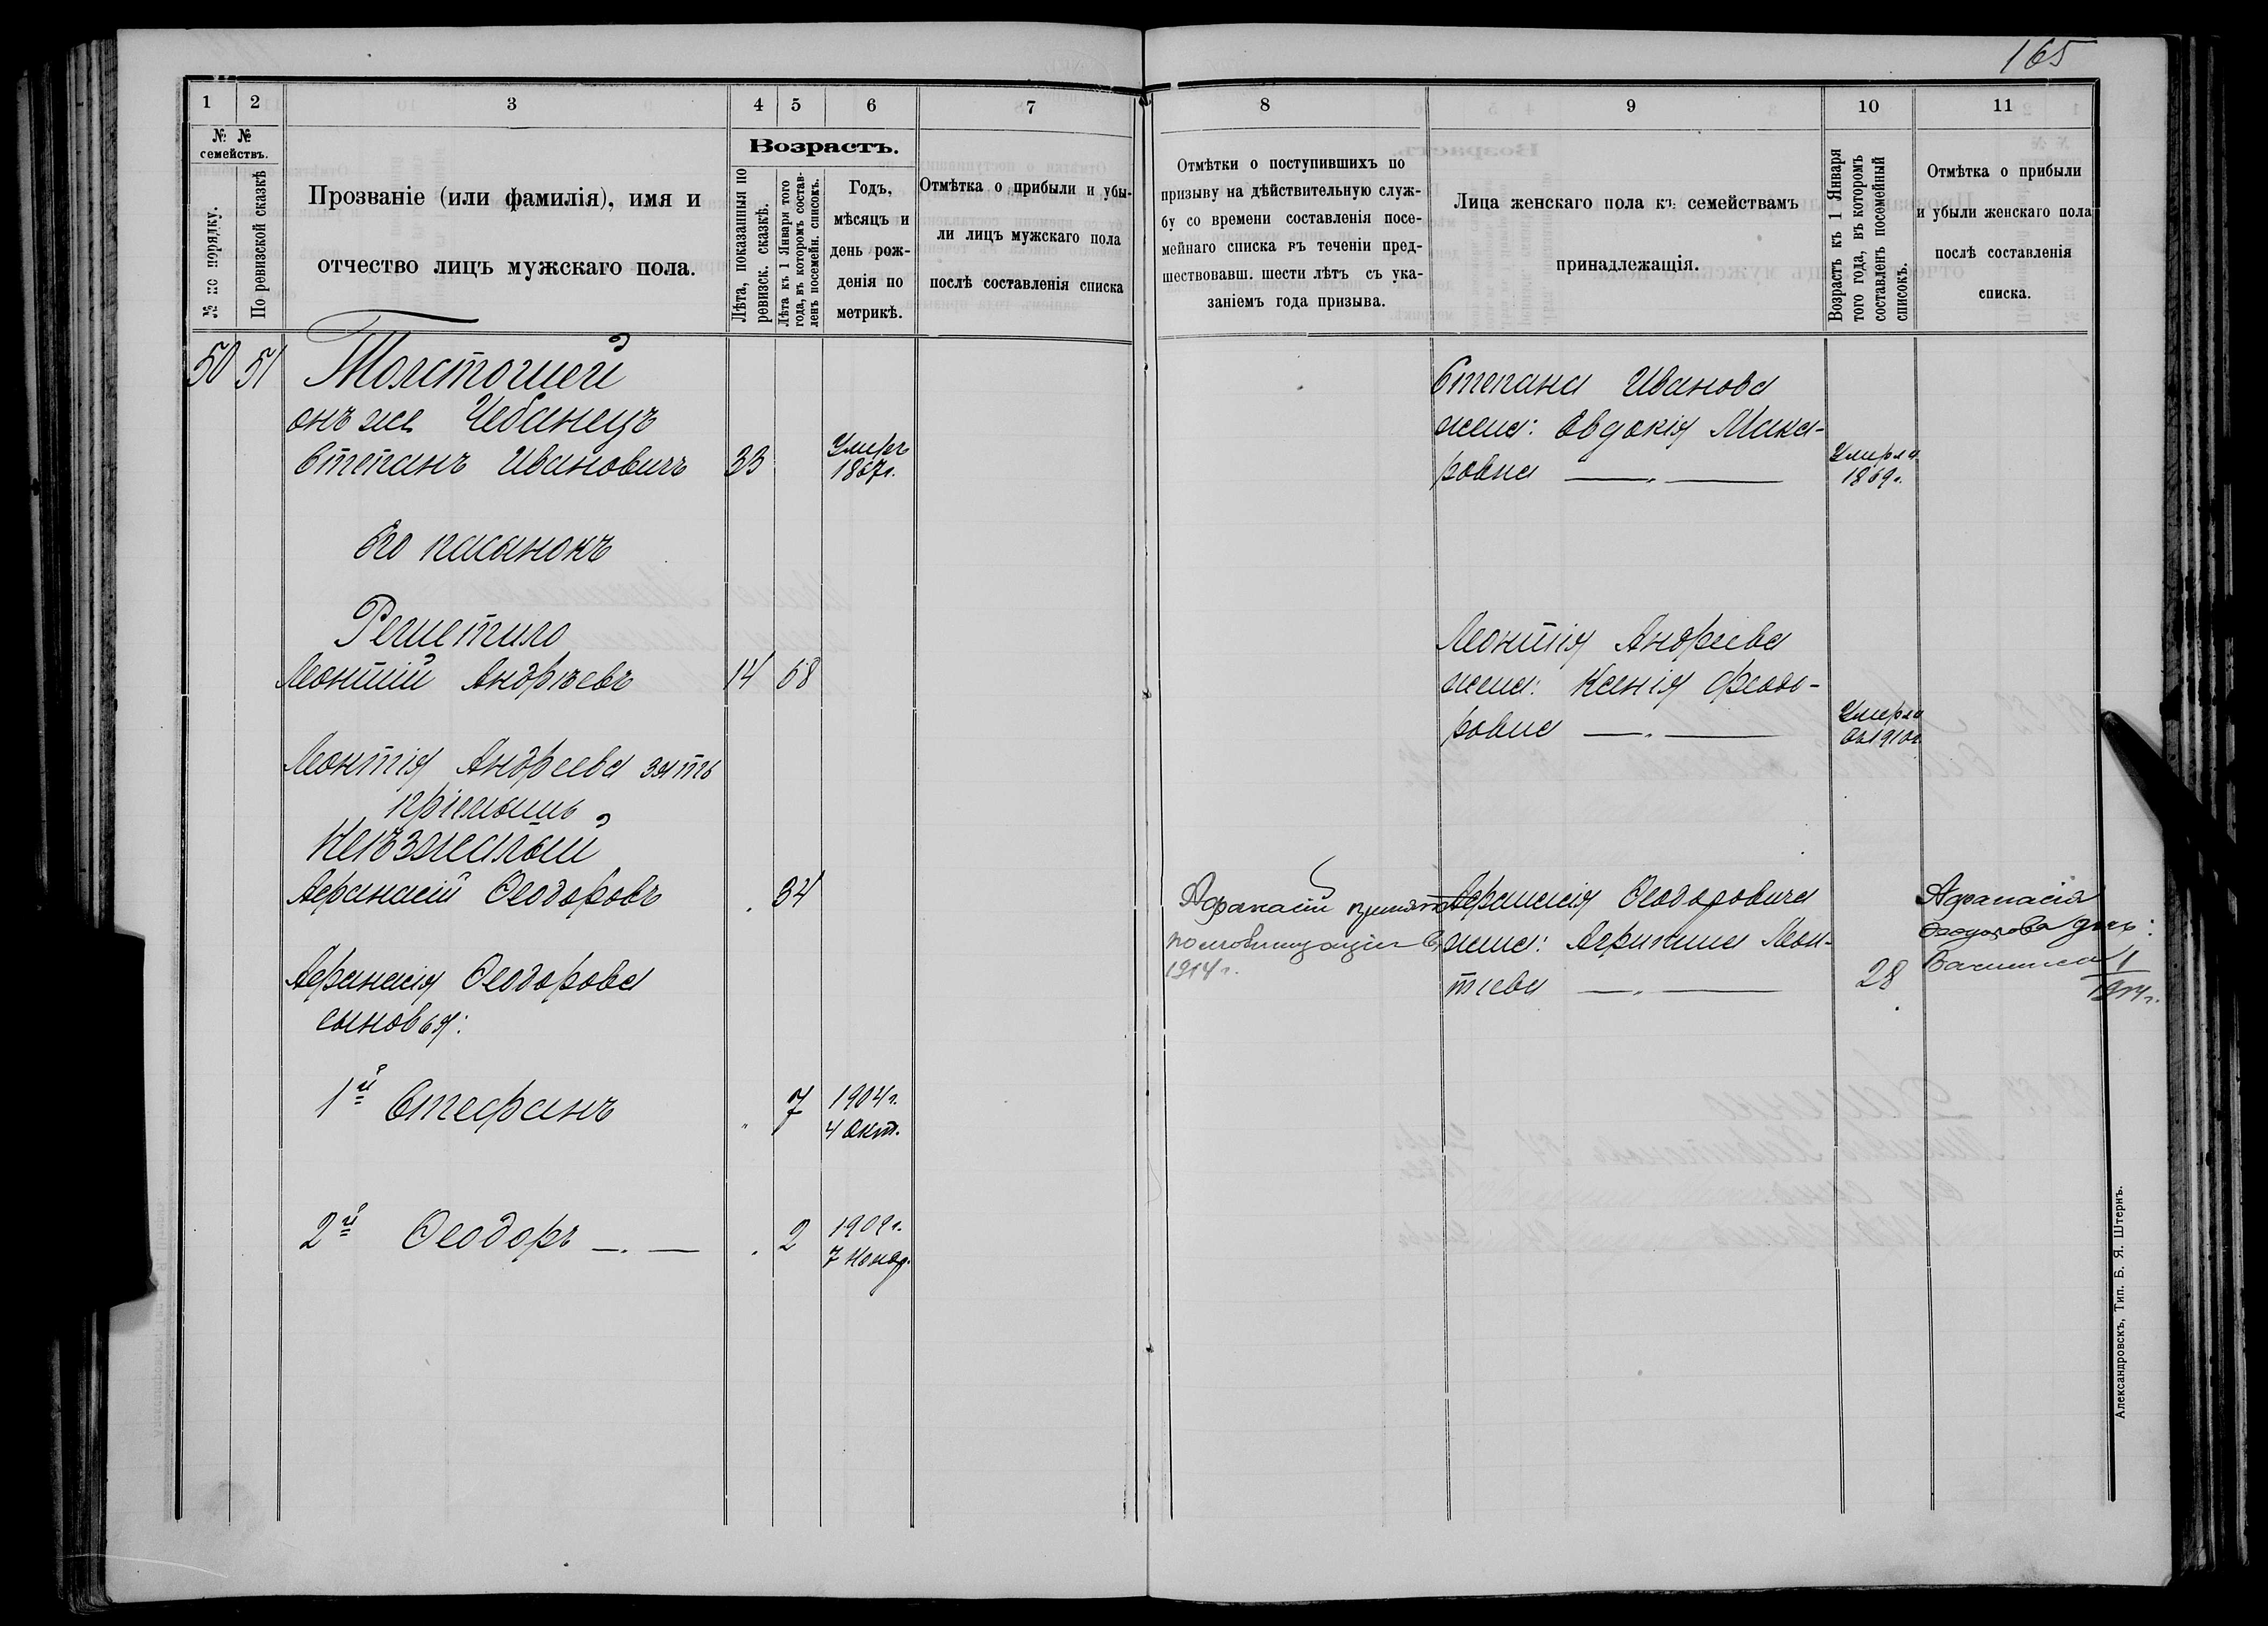 165
1
2
3
4
5
6
7
№ №
семействъ.
№ по порядку.
По ревизской сказкѣ
Прозваніе (или фамилія), имя и
отчество лицъ мужскаго пола.
Возрастъ.
Лѣта, показанныя по
ревизск. сказкѣ.
Лѣта къ 1 Января того
года, въ которомъ состав-
ленъ посемейн. списокъ.
Годъ,
мѣсяцъ и
день рож-
денія по
метрикѣ.
Отмѣтка о прибыли и убы-
ли лицъ мужскаго пола
послѣ составленія списка
50 51 Толстошей
онъ же Чебанецъ
Степанъ Ивановичъ 33 Умеръ
1867 г.
Его пасынокъ
Решетило
Леонтій Андрѣевъ 14 68
Леонтія Андреева зять
пріемышъ
Неѣзжалый
Афанасій Ѳеодоровъ 34
Афанасія Ѳеодорова
сыновья:
1й Стефанъ " 7 1904 г.
4 Окт.
2й Ѳеодоръ 2 1909 г.
7 Нояб.
8
9
10
11
Отмѣтки о поступившихъ по
призыву на дѣйствительную служ-
бу со времени составленія посе-
мейнаго списка въ теченіи пред-
шествовавш. шести лѣтъ съ ука-
заніемъ года призыва.
Лица женскаго пола къ семействамъ
принадлежащія.
Возрастъ къ 1 Января
того года, въ которомъ
составленъ посемейный
списокъ.
Отмѣтка о прибыли
и убыли женскаго пола
послѣ составленія
списка.
Степана Иванова
жена: Евдокія Мака-
ровна Умерла
1869 г.
Леонтія Андреева
жена: Ксенія Феодо-
ровна Умерла
1910 г.
Афанасій принятъ
по мобилизаціи въ
1914 г.
Афанасія Ѳеодоровича
жена: Агрипина Леон-
тьева 28
Афанасія
Ѳеодорова дочь:
Василиса 1
1914 г.
Александровскъ, Тип. Б. Я. Штернъ.